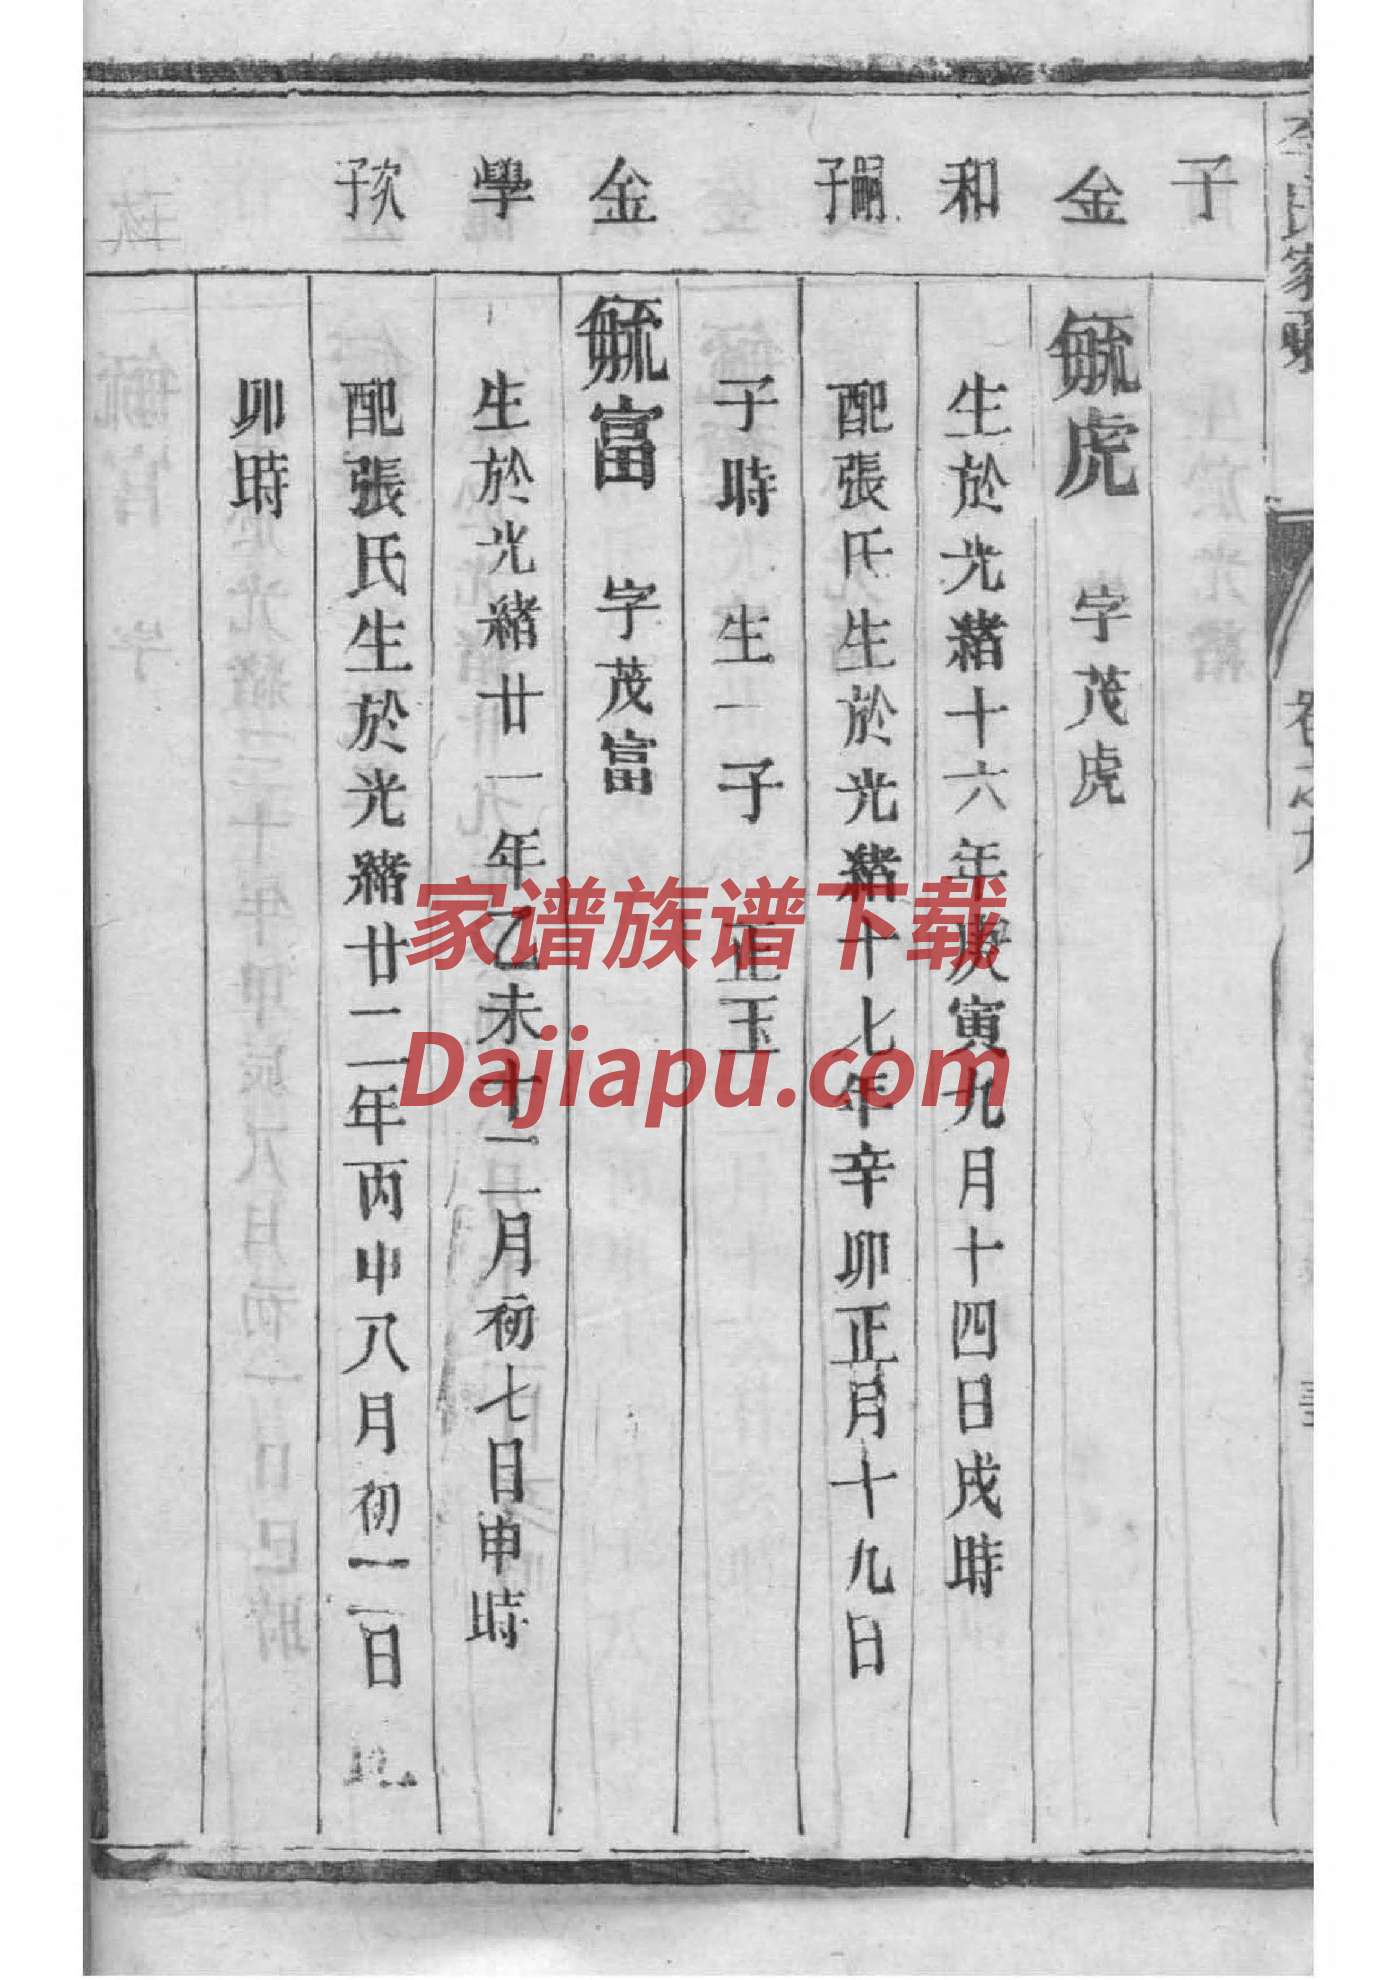 子
金 毓虎 字茂虎
和 生於光緒十六年庚寅九月十四日戌時
嗣子 配張氏生於光緒十七年辛卯正月十九日
子時 生一子 正玉
金 毓富 字茂富
學 生於光緒廿一年乙未十二月初七日申時
次子 配張氏生於光緒廿二年丙申八月初二日
卯時
家谱族谱下载
Dajiapu.com